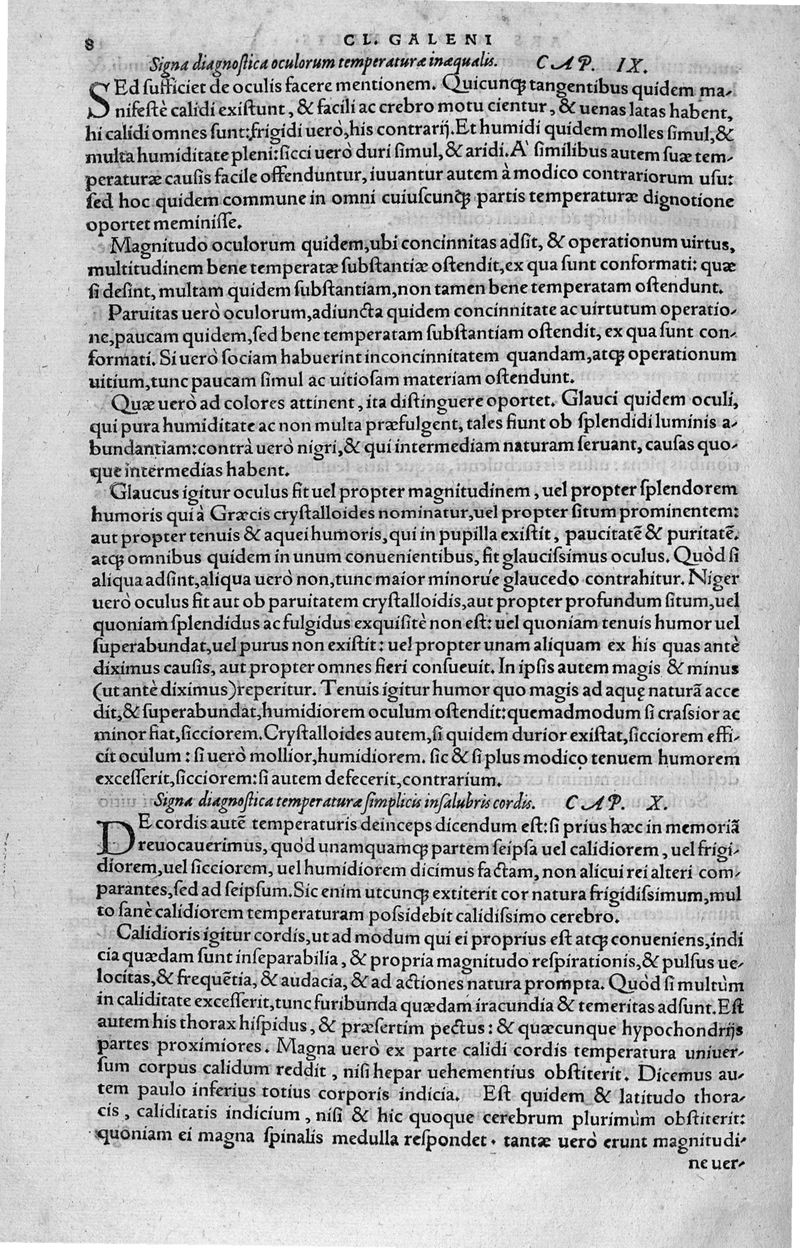 8 CL. GALENI
Signa diagnoſtica oculorum temperaturæ inæqualis. CAP. IX.
SEd ſufficiet de oculis facere mentionem. Quicunq; tangentibus quidem ma-
nifeſtè calidi exiſtunt, & facili ac crebro motu cientur, & uenas latas habent,
hi calidi omnes ſunt: frigidi uerò, his contrarij. Et humidi quidem molles ſimul, &
multa humiditate pleni: ſicci uerò duri ſimul, & aridi. A' ſimilibus autem ſuæ tem-
peraturæ cauſis facile offenduntur, iuuantur autem à modico contrariorum uſu:
ſed hoc quidem commune in omni cuiuſcunq; partis temperaturæ dignotione
oportet meminiſſe.
Magnitudo oculorum quidem, ubi concinnitas adſit, & operationum uirtus,
multitudinem bene temperatæ ſubſtantiæ oſtendit, ex qua ſunt conformati: quæ
ſi deſint, multam quidem ſubſtantiam, non tamen bene temperatam oſtendunt.
Paruitas uerò oculorum, adiuncta quidem concinnitate ac uirtutum operatio-
ne, paucam quidem, ſed bene temperatam ſubſtantiam oſtendit, ex qua ſunt con-
formati. Si uerò ſociam habuerint inconcinnitatem quandam, atq; operationum
uitium, tunc paucam ſimul ac uitioſam materiam oſtendunt.
Quæ uerò ad colores attinent, ita diſtinguere oportet. Glauci quidem oculi,
qui pura humiditate ac non multa præfulgent, tales fiunt ob ſplendidi luminis a-
bundantiam: contrà uerò nigri, & qui intermediam naturam ſeruant, cauſas quo-
que intermedias habent.
Glaucus igitur oculus fit uel propter magnitudinem, uel propter ſplendorem
humoris qui à Græcis cryſtalloides nominatur, uel propter ſitum prominentem:
aut propter tenuis & aquei humoris, qui in pupilla exiſtit, paucitatē & puritatē.
atq; omnibus quidem in unum conuenientibus, fit glauciſsimus oculus. Quòd ſi
aliqua adſint, aliqua uerò non, tunc maior minorúe glaucedo contrahitur. Niger
uerò oculus fit aut ob paruitatem cryſtalloidis, aut propter profundum ſitum, uel
quoniam ſplendidus ac fulgidus exquiſitè non eſt: uel quoniam tenuis humor uel
ſuperabundat, uel purus non exiſtit: uel propter unam aliquam ex his quas antè
diximus cauſis, aut propter omnes fieri conſueuit. In ipſis autem magis & minus
(ut antè diximus) reperitur. Tenuis igitur humor quo magis ad aquę naturā acce
dit, & ſuperabundat, humidiorem oculum oſtendit: quemadmodum ſi craſsior ac
minor fiat, ſicciorem. Cryſtalloides autem, ſi quidem durior exiſtat, ſicciorem effi-
cit oculum: ſi uerò mollior, humidiorem. ſic & ſi plus modico tenuem humorem
exceſſerit, ſicciorem: ſi autem defecerit, contrarium.
Signa diagnoſtica temperaturæ ſimplicis inſalubris cordis. CAP. X.
DE cordis autē temperaturis deinceps dicendum eſt: ſi prius hæc in memoriā
reuocauerimus, quòd unamquamq; partem ſeipſa uel calidiorem, uel frigi-
diorem, uel ſicciorem, uel humidiorem dicimus factam, non alicui rei alteri com-
parantes, ſed ad ſeipſum. Sic enim utcunq; extiterit cor natura frigidiſsimum, mul
to ſanè calidiorem temperaturam poſsidebit calidiſsimo cerebro.
Calidioris igitur cordis, ut ad modum qui ei proprius eſt atq; conueniens, indi
cia quædam ſunt inſeparabilia, & propria magnitudo reſpirationis, & pulſus ue-
locitas, & frequētia, & audacia, & ad actiones natura prompta. Quòd ſi multùm
in caliditate exceſſerit, tunc furibunda quædam iracundia & temeritas adſunt. Eſt
autem his thorax hiſpidus, & præſertim pectus: & quæcunque hypochondrijs
partes proximiores. Magna uerò ex parte calidi cordis temperatura uniuer
ſum corpus calidum reddit, niſi hepar uehementius obſtiterit. Dicemus au-
tem paulo inferius totius corporis indicia. Eſt quidem & latitudo thora-
cis, caliditatis indicium, niſi & hic quoque cerebrum plurimùm obſtiterit:
quoniam ei magna ſpinalis medulla reſpondet. tantæ uerò erunt magnitudi-
ne uer-